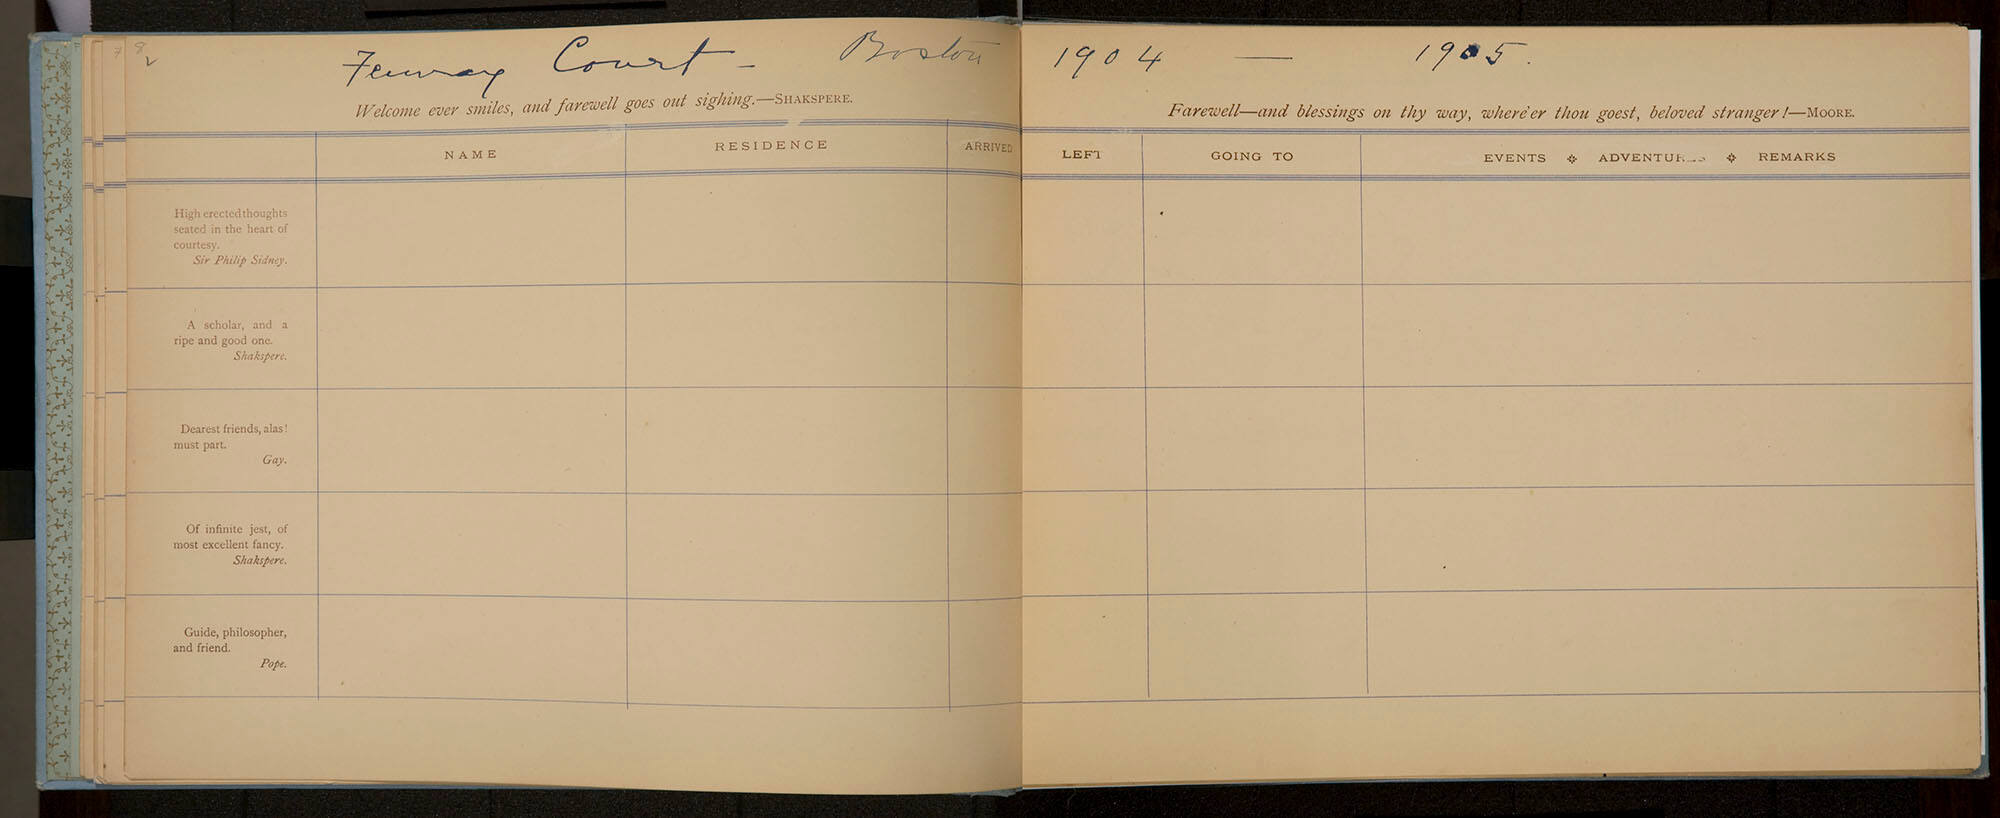 8
Fenway Court - Boston
1904 — 1905.
Welcome ever smiles, and farewell goes out sighing.—SHAKSPERE.
Farewell—and blessings on thy way, where'er thou goest, beloved stranger!—MOORE.
NAME RESIDENCE ARRIVED
LEFT GOING TO EVENTS ADVENTUR REMARKS
High erected thoughts
seated in the heart of
courtesy.
Sir Philip Sidney.
A scholar, and a
ripe and good one.
Shakspere.
Dearest friends, alas!
must part.
Gay.
Of infinite jest, of
most excellent fancy.
Shakspere.
Guide, philosopher,
and friend.
Pope.